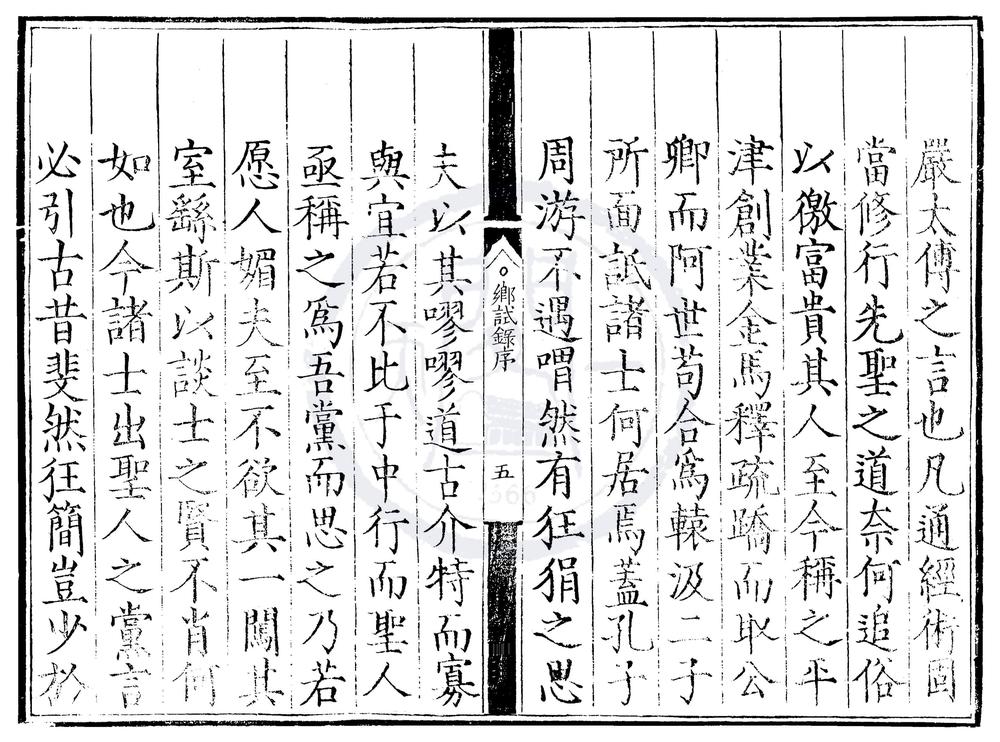 嚴太傅之言也凡通經術固
當修行先聖之道奈何追俗
以徼富貴其人至今稱之平
津創業金馬釋疏蹻而取公
卿而阿世苟合為轅汲二子
所面詆諸士何居焉蓋孔子
周游不遇喟然有狂狷之思
鄉試錄序
五
夫以其嘐嘐道古介特而寡
與宜若不比于中行而聖人
亟稱之為吾黨而思之乃若
愿人媚夫至不欲其一闖其
室繇斯以談士之賢不肖何
如也今諸士出聖人之黨言
必引古昔斐然狂簡豈少於